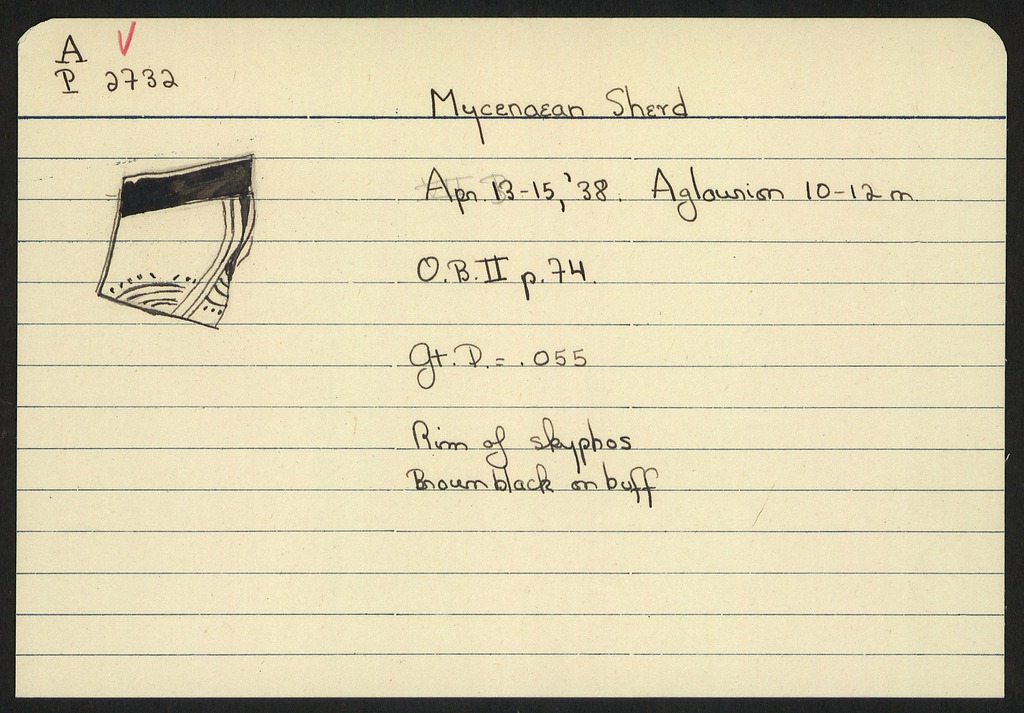 A
P 2732
Mycenaean Sherd
Apr. 13-15, '38. Aglaurion 10-12 m
O.B. II p. 74.
Gt. D. = .055
Rim of skyphos
Brown black on buff